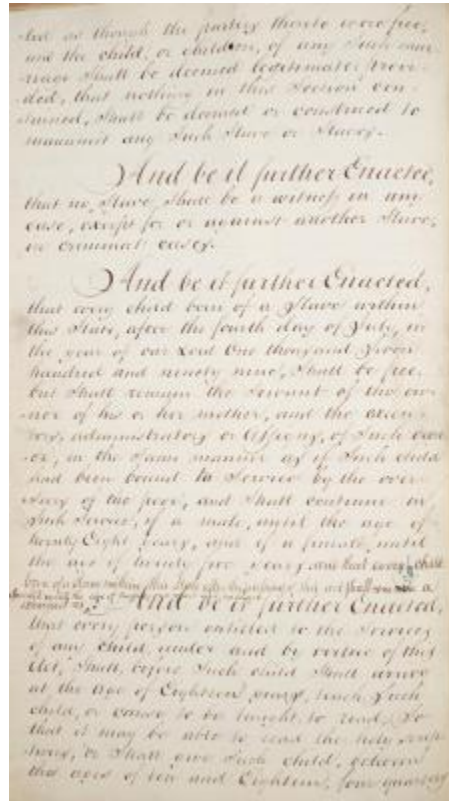 ted as though the parties thereto were free,
and the child, or children, of any Such mar-
riage Shall be deemed legitimate: Provi-
ded, that nothing in this Section con-
tained, Shall be deemed or construed to
manumit any Such Slave or Slaves.
And be it further Enacted,
that no Slave Shall be a witness in any
case, except for or against another Slave,
in criminal cases.
And be it further Enacted,
that every child born of a Slave within
this State, after the fourth day of July, in
the year of our Lord One thousand Seven
hundred and ninety nine, Shall be free,
but Shall remain the Servant of the ow-
ner of his or her mother, and the execu-
tors, administrators or Assigns, of Such own-
er, in the Same manner as if Such child
had been bound to Service by the over-
Seers of the poor, and Shall continue in
Such Service, if a male, until the age of
twenty Eight years, and if a female, until
the age of twenty five years and that every child
born of a Slave within this State after the passing of this act Shall
And be it further Enacted,
that every person entitled to the Services
of any child, under and by virtue of this
Act, Shall, before Such child Shall arrive
at the age of Eighteen years, teach Such
child, or cause to be taught, to read, So
that it may be able to read the holy Scrip-
tures, or Shall give Such child, between
the ages of ten and Eighteen, four quarters